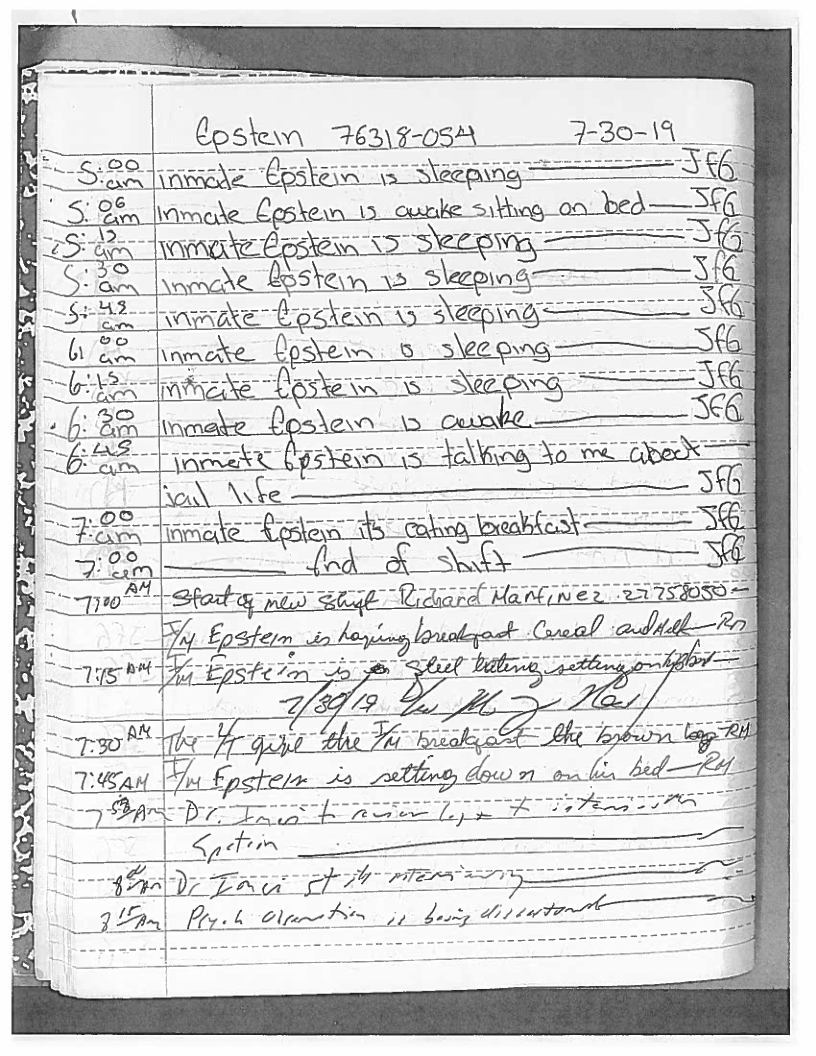 Epstein 76318-054 7-30-19
5:00 am inmate Epstein is sleeping JfG
5:06 am inmate Epstein is awake sitting on bed JfG
5:15 am inmate Epstein is sleeping JfG
5:30 am inmate Epstein is sleeping JfG
5:45 am inmate Epstein is sleeping JfG
6:00 am inmate Epstein is sleeping JfG
6:15 am inmate Epstein is sleeping JfG
6:30 am inmate Epstein is awake JfG
6:45 am inmate Epstein is talking to me about
jail life JfG
7:00 am inmate Epstein its eating breakfast JfG
7:00 am End of shift JfG
7:00 AM Start of new shift Richard Martinez 22758050
I/M Epstein is having breakfast Cereal and Milk RM
7:15 AM I/M Epstein is setting on his bed
7/30/19
7:30 AM The L/T give the I/M breakfast the brown bag RM
7:45 AM I/M Epstein is setting down on his bed RM
AM Dr. to review log +
Epstein
AM Dr
8 15 AM Psych observation is being